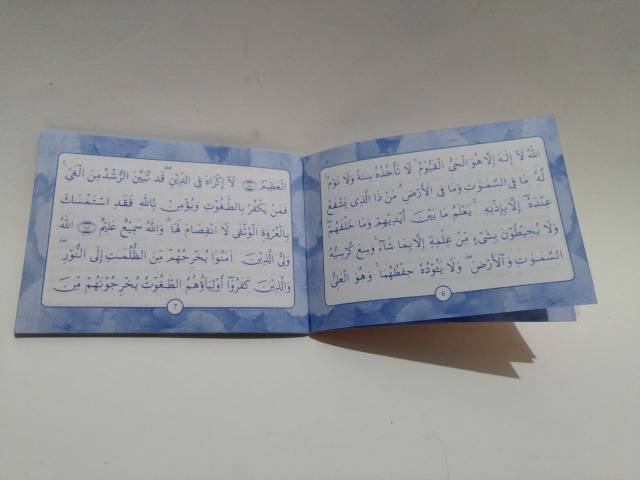 اللهُ لَآ اِلٰهَ اِلَّا هُوَ الْحَيُّ الْقَيُّوْمُ ۚ لَا تَأْخُذُهٗ سِنَةٌ وَّلَا نَوْمٌ ۗ
لَهٗ مَا فِى السَّمٰوٰتِ وَمَا فِى الْاَرْضِ ۗ مَنْ ذَا الَّذِى يَشْفَعُ
عِنْدَهٗٓ اِلَّا بِاِذْنِهٖ ۗ يَعْلَمُ مَا بَيْنَ اَيْدِيْهِمْ وَمَا خَلْفَهُمْ ۚ
وَلَا يُحِيْطُوْنَ بِشَيْءٍ مِّنْ عِلْمِهٖٓ اِلَّا بِمَا شَآءَ ۚ وَسِعَ كُرْسِيُّهُ
السَّمٰوٰتِ وَالْاَرْضَ ۚ وَلَا يَـُٔوْدُهٗ حِفْظُهُمَا ۚ وَهُوَ الْعَلِيُّ
6
الْعَظِيْمُ ﴿٢٥٥﴾ لَآ اِكْرَاهَ فِى الدِّيْنِ ۗ قَدْ تَّبَيَّنَ الرُّشْدُ مِنَ الْغَيِّ ۚ
فَمَنْ يَّكْفُرْ بِالطَّاغُوْتِ وَيُؤْمِنْۢ بِاللهِ فَقَدِ اسْتَمْسَكَ
بِالْعُرْوَةِ الْوُثْقٰى لَا انْفِصَامَ لَهَا ۗ وَاللهُ سَمِيْعٌ عَلِيْمٌ ﴿٢٥٦﴾ اَللهُ
وَلِيُّ الَّذِيْنَ اٰمَنُوْا يُخْرِجُهُمْ مِّنَ الظُّلُمٰتِ اِلَى النُّوْرِ ۗ
وَالَّذِيْنَ كَفَرُوْٓا اَوْلِيَاۤؤُهُمُ الطَّاغُوْتُ يُخْرِجُوْنَهُمْ مِّنَ
7